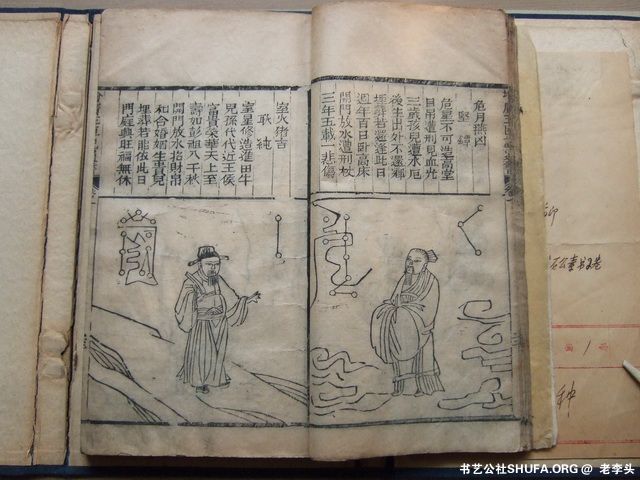 危月燕凶
堅鐔
危星不可造高堂
自吊遭刑見血光
三歲孩兒遭水厄
後生出外不還鄉
埋葬若還逢此日
週年百日臥高床
開門放水遭刑杖
三年五載一悲傷
室火猪吉
耿純
室星修造進田牛
兒孫代代近王侯
富貴榮華天上至
壽如彭祖八千秋
開門放水招財帛
和合婚姻生貴兒
埋葬若能依此日
門庭興旺福無休
书艺公社SHUFA.ORG @ 老李头